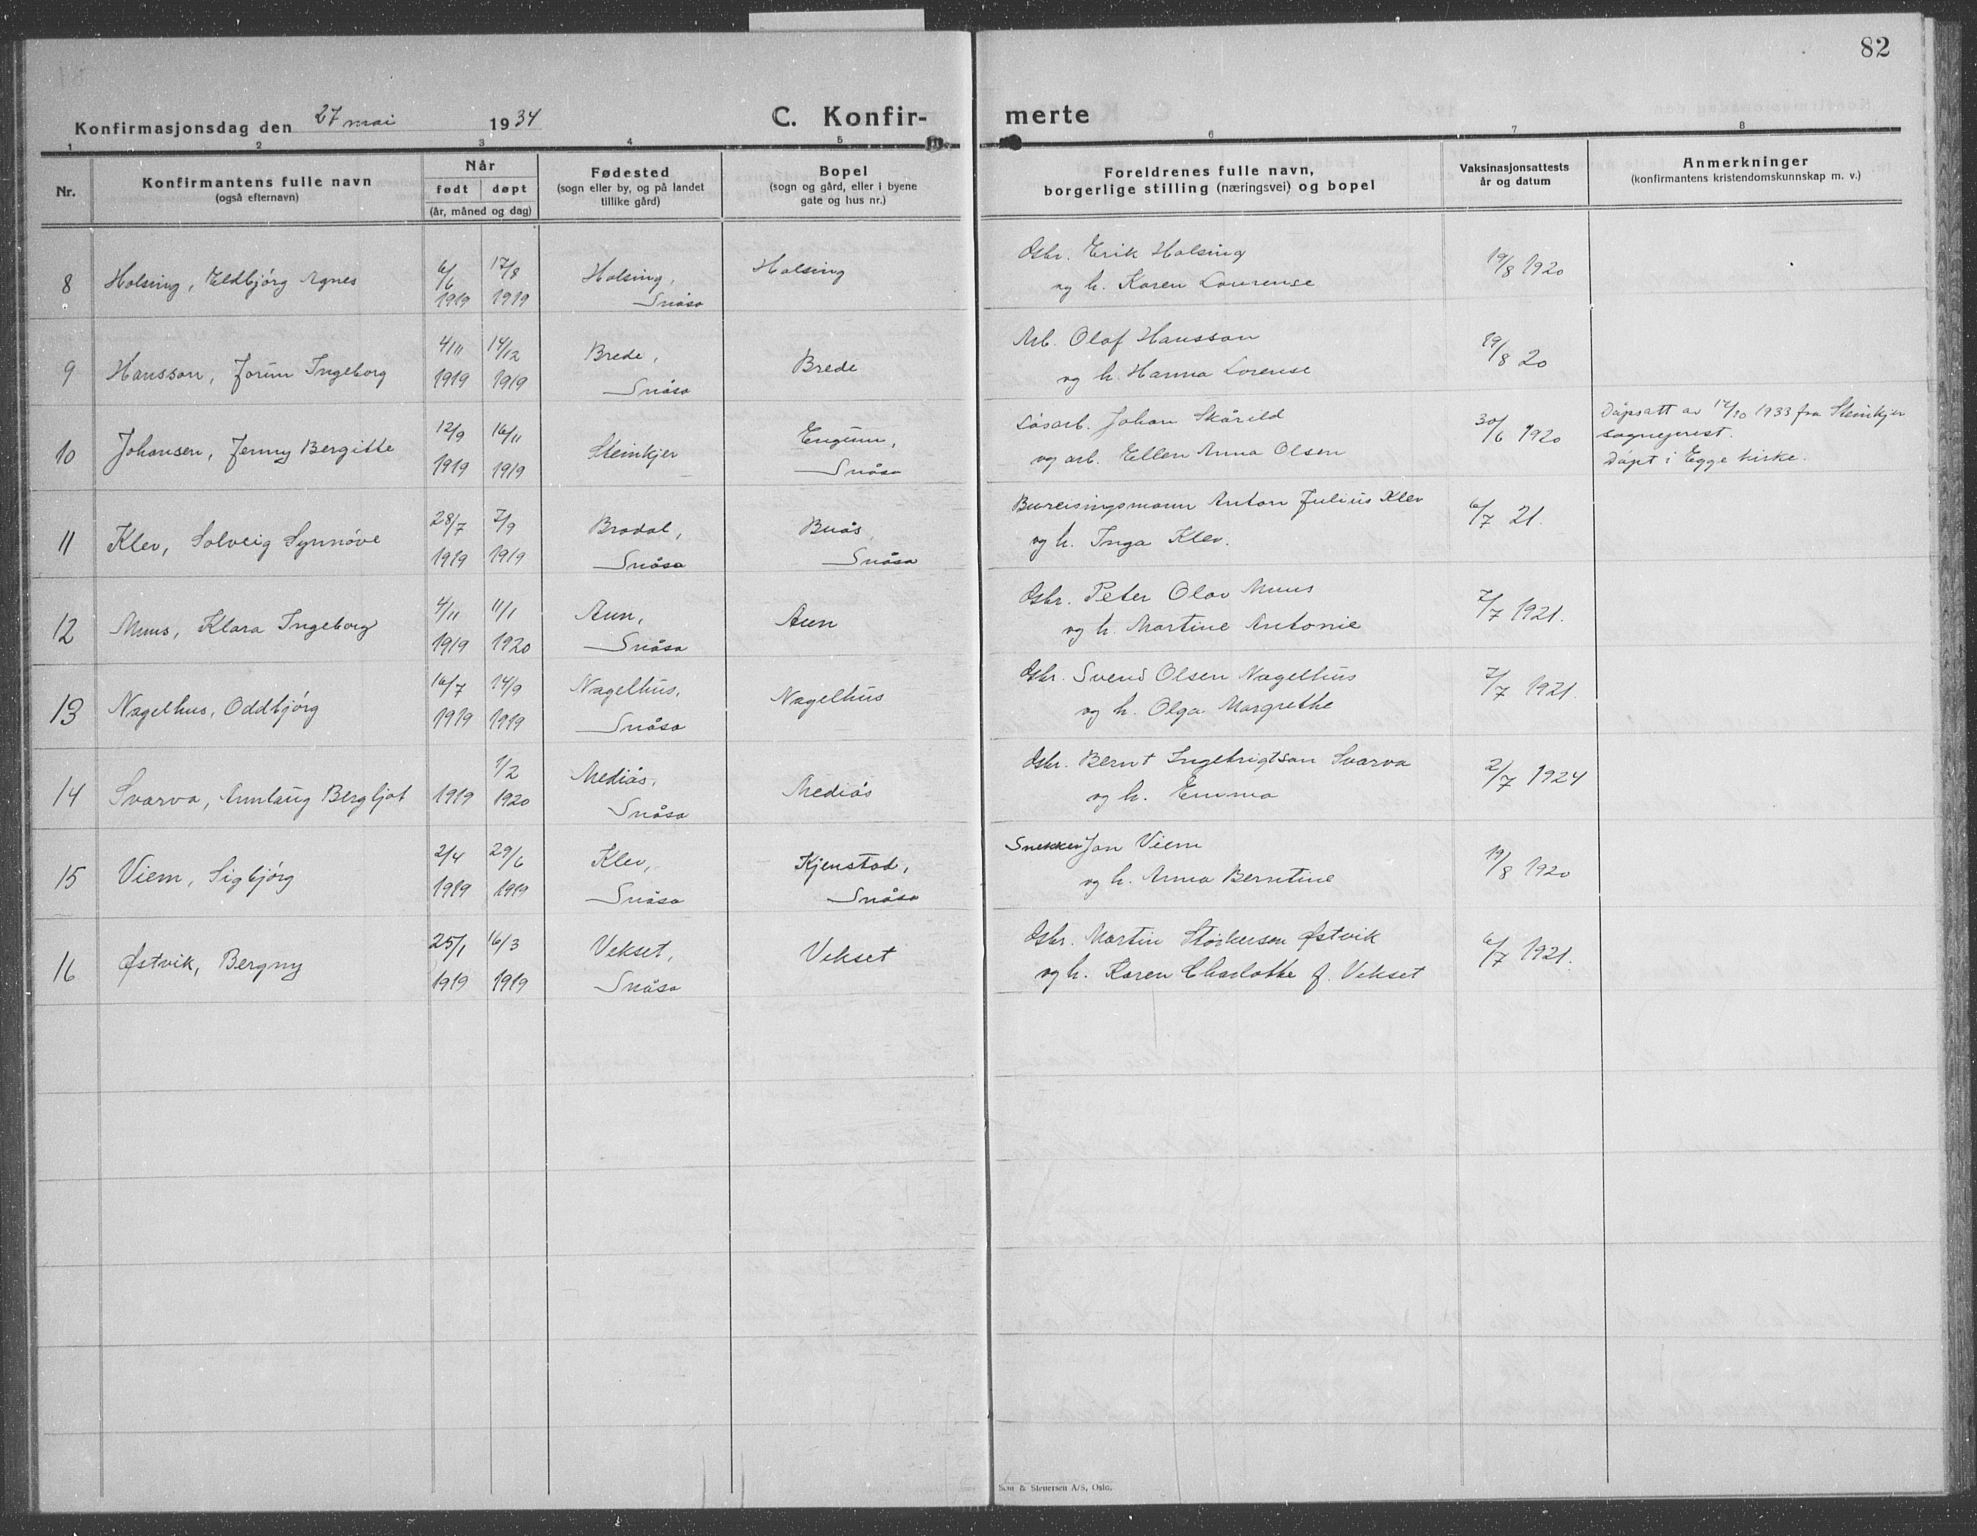 82
Konfirmasjonsdag den 27 mai 1934
C. Konfir-merte
1 2 3 4 5 6 7 8
Nr.
Konfirmantens fulle navn
(også efternavn)
Når
født døpt
(år, måned og dag)
Fødested
(sogn eller by, og på landet
tillike gård)
Bopel
(sogn og gård, eller i byene
gate og hus nr.)
Foreldrenes fulle navn,
borgerlige stilling (næringsvei) og bopel
Vaksinasjonsattests
år og datum
Anmerkninger
(konfirmantens kristendomskunnskap m. v.)
8 Holsing, Eldbjørg Agnes 6/6 17/8 Holsing, Holsing Gbr. Erik Holsing 19/8 1920
1919 1919 Snåsa og h. Karen Lourense
9 Hansson, Jorun Ingeborg 4/11 14/12 Brede, Brede Arb. Olof Hansson 19/8 20
1919 1919 Snåsa og h. Hanna Lorense
10 Johansen, Jenny Bergitte 12/9 16/11 Steinkjer Engum, Løsarb. Johan Skårild 30/6 1920 Dåpsatt av 12/10 1933 fra Steinkjer
1919 1919 Snåsa og arb. Ellen Anna Olsen sogneprest.
Døpt i Egge kirke.
11 Klev, Solveig Synnøve 28/7 7/9 Brodal, Buås, Bureisingsmann Anton Julius Klev 6/7 21.
1919 1919 Snåsa Snåsa og h. Inga Klev.
12 Muus, Klara Ingeborg 4/11 11/1 Aun, Aun Gbr. Peter Olav Muus 7/7 1921.
1919 1920 Snåsa og h. Martine Antonie
13 Nagelhus, Oddbjørg 16/7 14/9 Nagelhus, Nagelhus Gbr. Svend Olsen Nagelhus 7/7 1921.
1919 1919 Snåsa og h. Olga Margrethe
14 Svarva, Annlaug Bergljot 1/2 Mediås, Mediås Gbr. Bernt Ingebrigtsen Svarva 2/7 1924
1919 1920 Snåsa og h. Emma
15 Viem, Sigbjørg 2/4 29/6 Klev, Kjenstad, Snekker Jon Viem 19/8 1920
1919 1919 Snåsa Snåsa og h. Anna Berntine
16 Østvik, Bergny 25/1 16/3 Vekset, Vekset Gbr. Martin Størkersen Østvik 6/7 1921.
1919 1919 Snåsa og h. Karen Charlotte f. Vekset
& Steuersen A/S, Oslo.